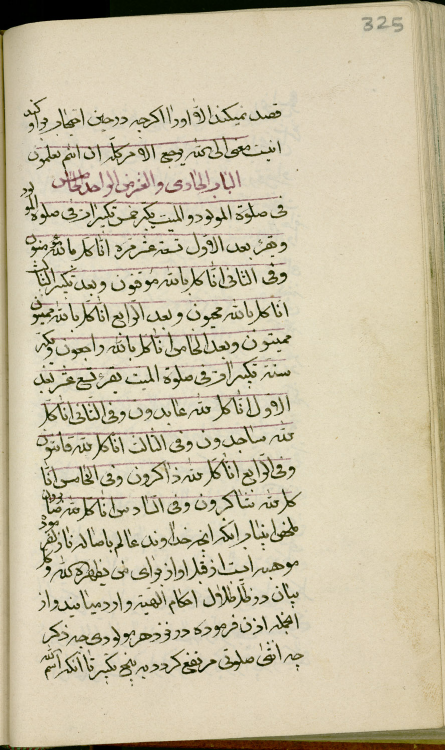 325
قصد نمیکند الا او را اگرچه در حین احتجاب
انیت معنی الی الله یرجع الامر کله ان انتم تعلمون
الباب الحادی و العشر من الواحد الخامس
فی صلوة المولود و المیت یکبر خمس تکبیرات فی صلوة المولود
و یقرء بعد الاول تسعة عشر مرة انا کل بالله مؤمنون
و فی الثانی انا کل بالله موقنون و بعد تکبیر الثالث
انا کل بالله محیون و بعد الرابع انا کل بالله ممیتون
ممیتون و بعد الخامس انا کل بالله راضون و یکبر
ستة تکبیرات فی صلوة المیت یقرء تسع عشر بعد
الاول انا کل لله عابدون و فی الثانی انا کل
لله ساجدون و فی الثالث انا کل لله قانتون
و فی الرابع انا کل لله ذاکرون و فی الخامس انا
کل لله شاکرون و فی السادس انا کل لله صابرون
ملخص این باب آنکه آنچه خداوند عالم باصاله نازل فرموده
موهبة است از قبل او از برای من یظهره الله و کل
بیان در ظل ظلال احکام الهیه وارد میایند و از
آنجمله اذن فرموده در نزد هر مولودی چه ذکر
چه انثی صلوتی مرتفع گردد به پنج تکبیر تا آنکه اسم الله